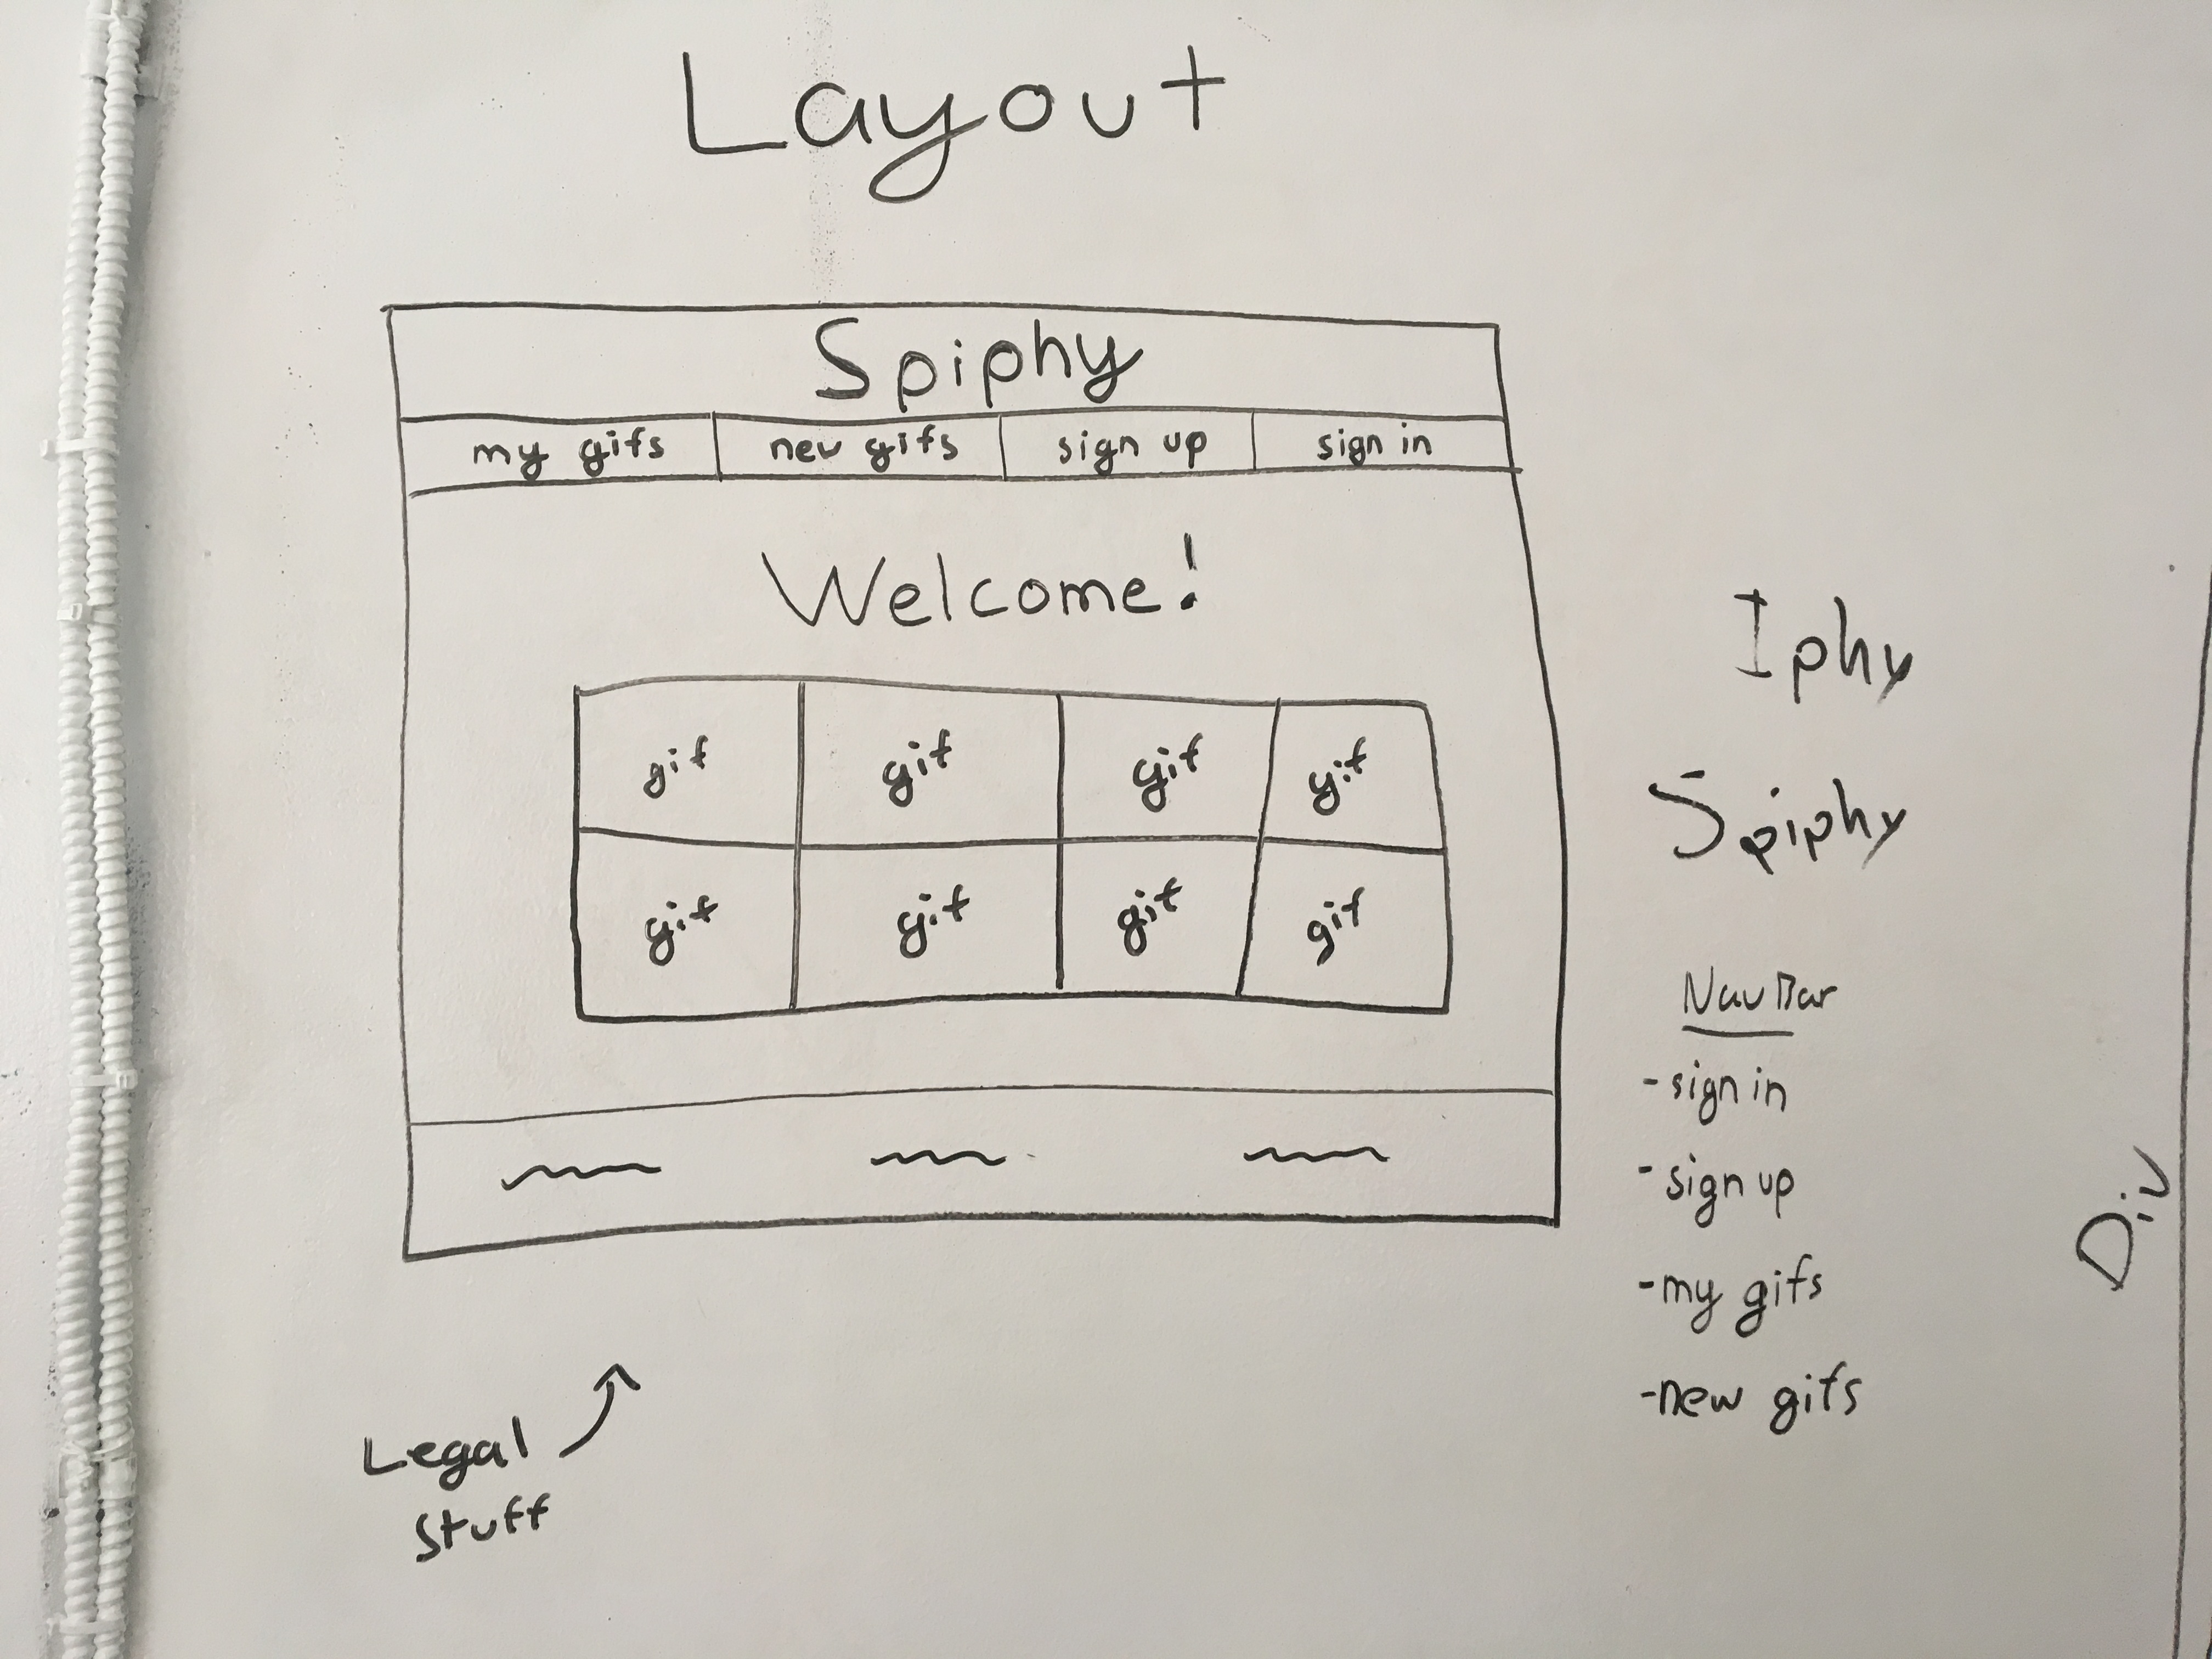 Layout
Spiphy
my gifs new gifs sign up sign in
Welcome!
gif gif gif gif
gif gif gif gif
Legal
Stuff
Iphy
Spiphy
NavBar
- sign in
- sign up
- my gifs
- new gifs
Div